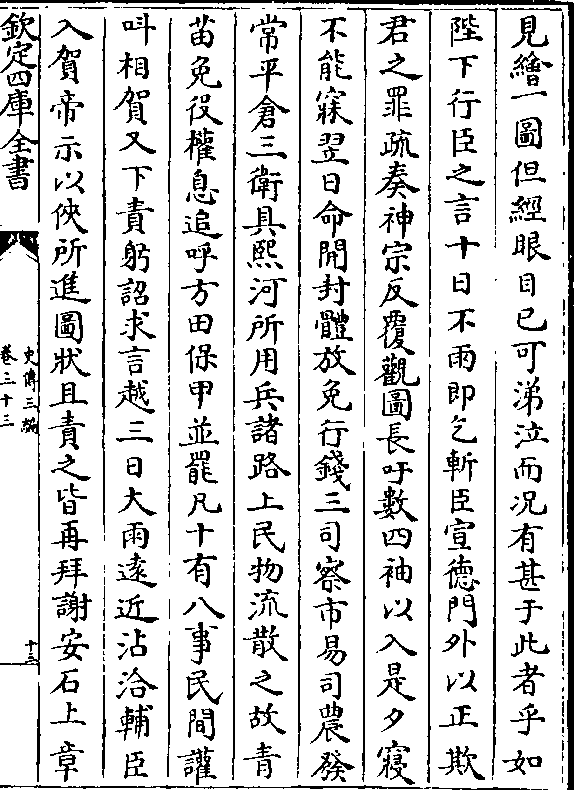 見繪一圖但經眼目已可涕泣而况有甚于此者乎如
陛下行臣之言十日不雨即乞斬臣宣德門外以正欺
君之罪疏奏神宗反覆觀圖長吁數四袖以入是夕寢
不能寐翌日命開封體放免行錢三司察市易司農發
常平倉三衛具熙河所用兵諸路上民物流散之故青
苗免役權息追呼方田保甲並罷凡十有八事民間讙
呌相賀又下責躬詔求言越三日大雨遠近沾洽輔臣
入賀帝示以俠所進圖狀且責之皆再拜謝安石上章
欽定四庫全書
史傳三編
卷三十三
十三